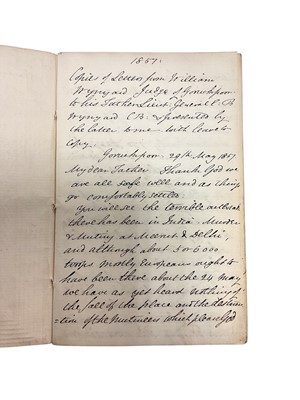 1857.
Copies of Letters from William
Wynyard Judge of Goruckpon
to his Father Lieut. General E. B
Wynyard C B. & presented by
the latter to me with leave to
copy.
Goruckpon 29th May 1857
My dear Father Thank God we
are all safe well and as things
go comfortably settled.
You will see the terrible outbreak
there has been in India. Murder
& Mutiny at Meerut & Delhi,
and although about 5 or 6000
troops mostly Europeans ought to
have been there about the 24 May
we have as yet heard nothing of
the fall of the place and the destruc
=tion of the Mutineers which please God